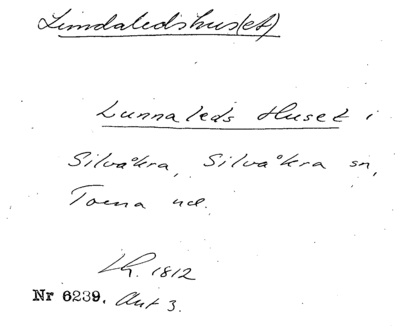 Limdaledshus(et)
Lunnaleds Huset i
Silvåkra, Silvåkra sn,
Torna hd.
Lh. 1812
Nr 6239. Akt 3.